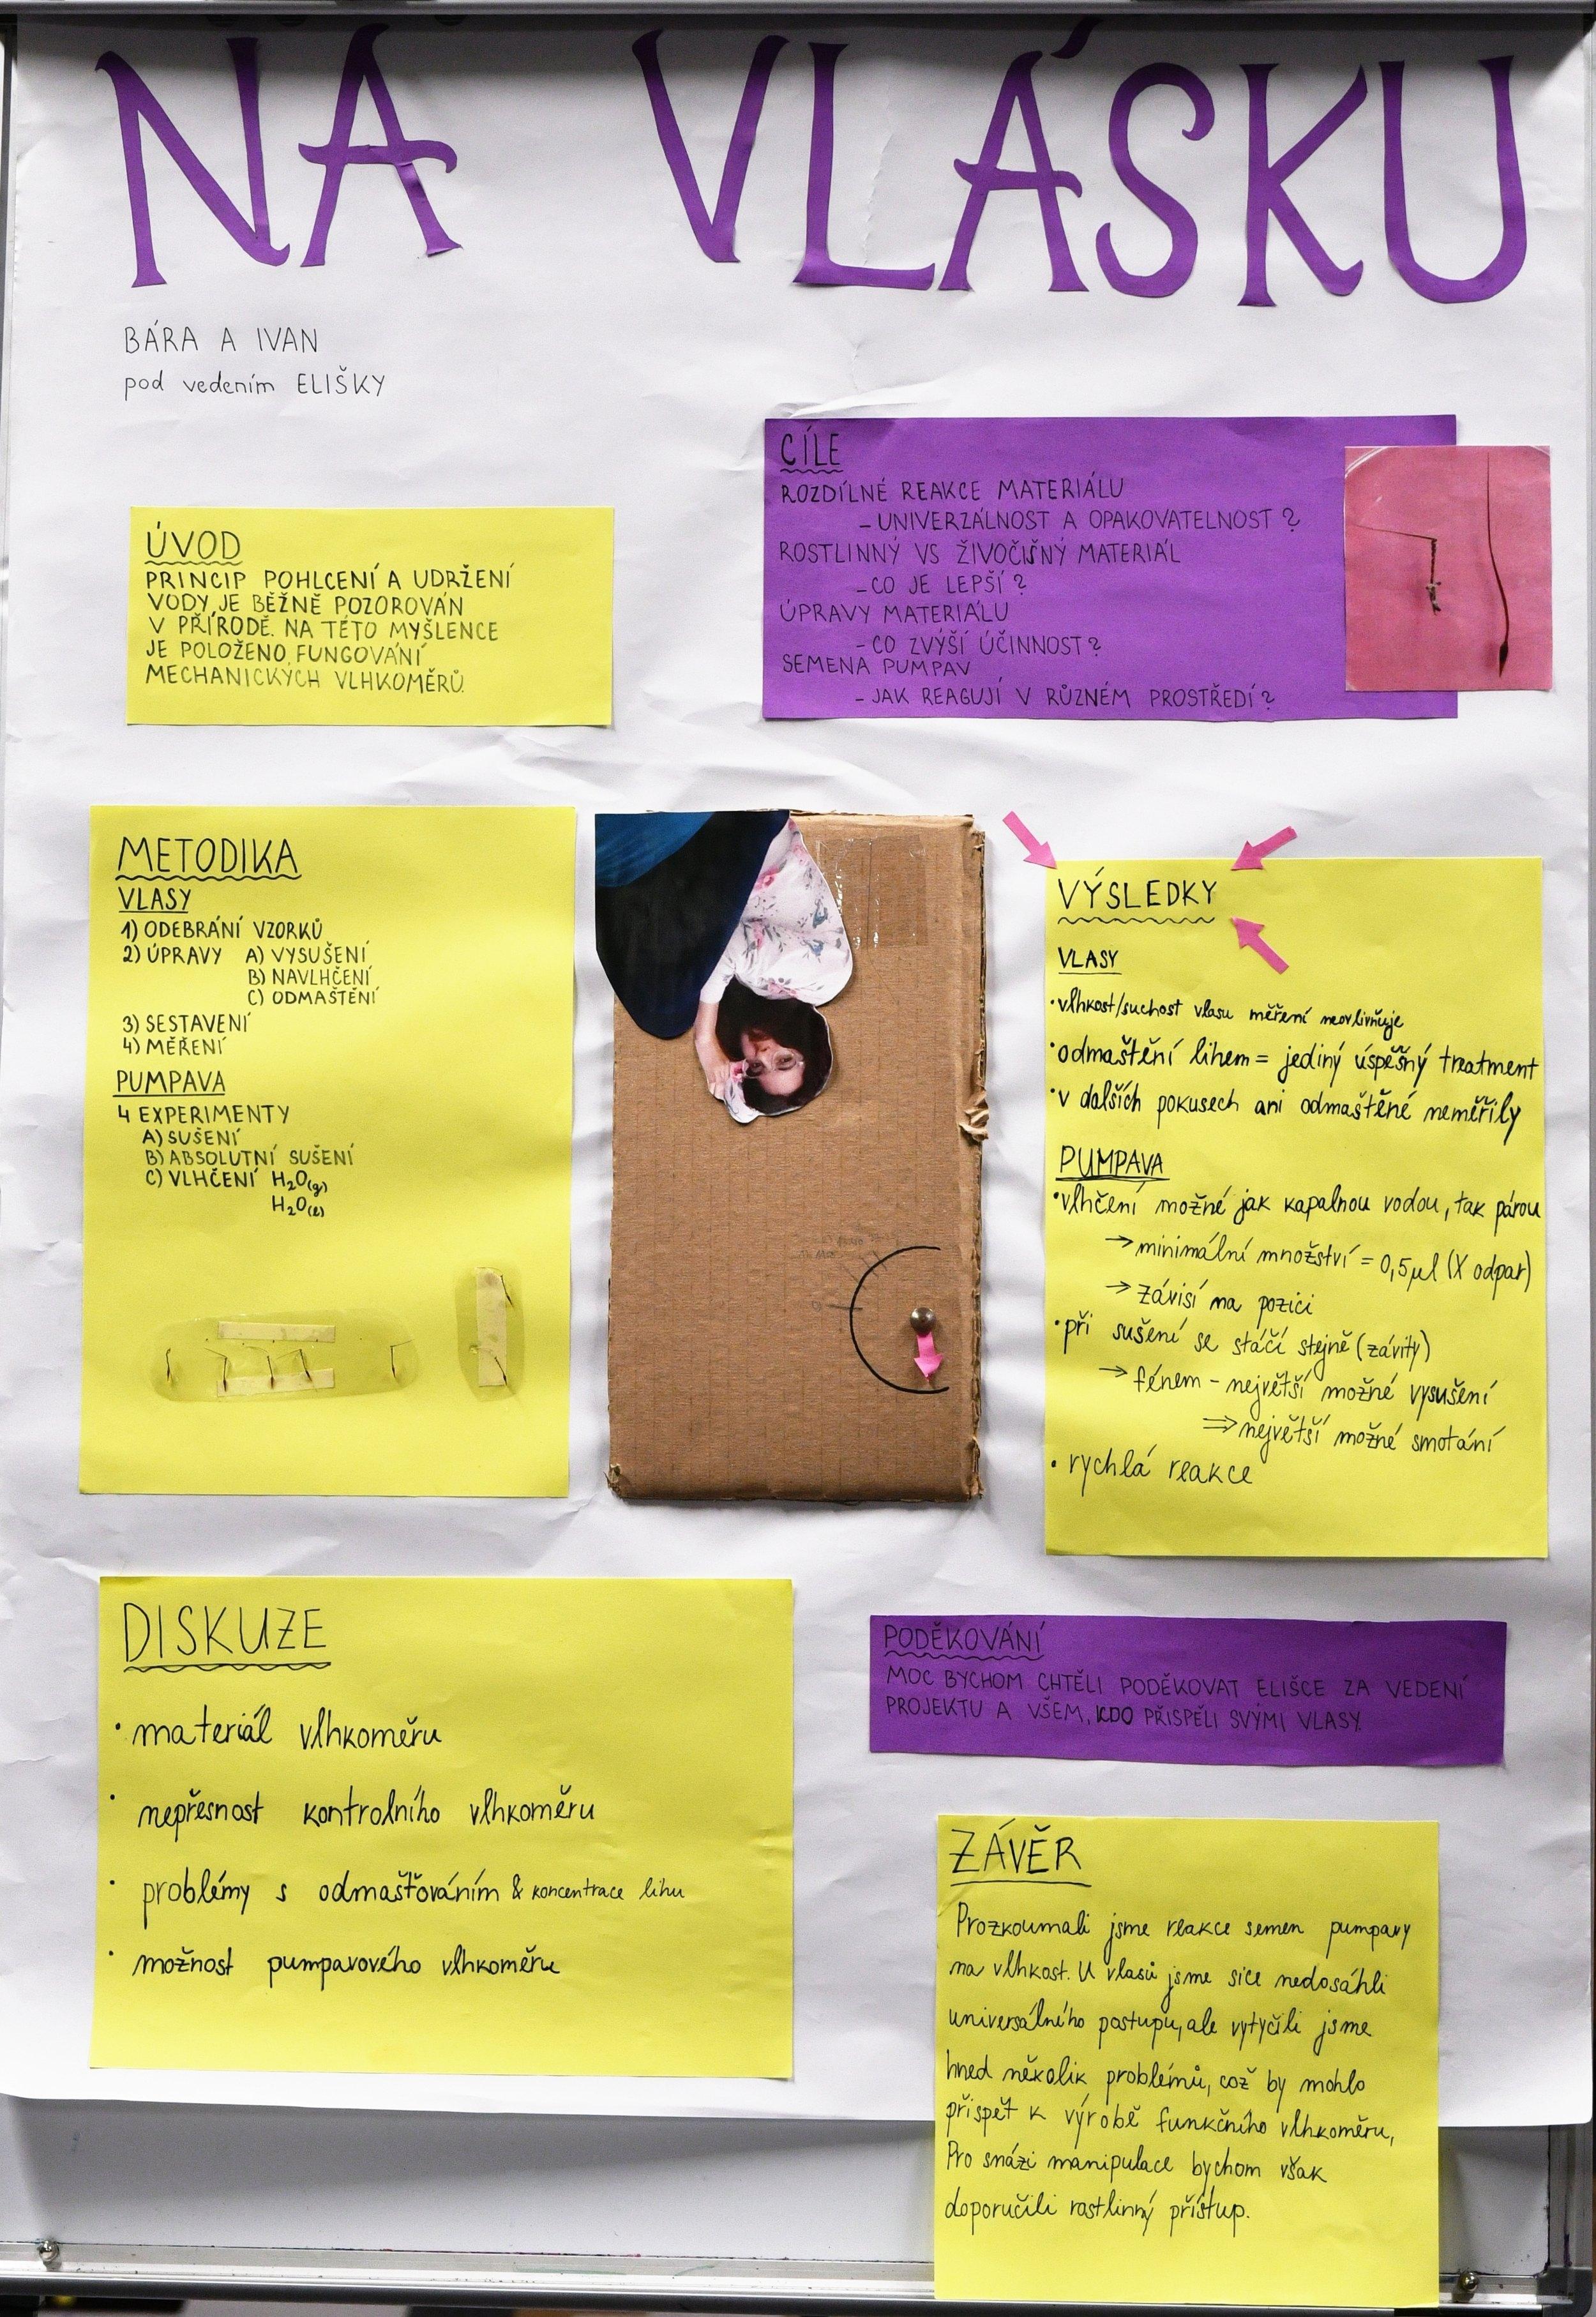 NA VLÁSKU
BÁRA A IVAN
pod vedením ELIŠKY
CÍLE
ROZDÍLNÉ REAKCE MATERIÁLU
- UNIVERZÁLNOST A OPAKOVATELNOST?
ROSTLINNÝ VS ŽIVOČIŠNÝ MATERIÁL
- CO JE LEPŠÍ?
ÚPRAVY MATERIÁLU
- CO ZVÝŠÍ ÚČINNOST?
SEMENA PUMPAV
- JAK REAGUJÍ V RŮZNÉM PROSTŘEDÍ?
ÚVOD
PRINCIP POHLCENÍ A UDRŽENÍ
VODY JE BĚŽNĚ POZOROVÁN
V PŘÍRODĚ. NA TÉTO MYŠLENCE
JE POLOŽENO FUNGOVÁNÍ
MECHANICKÝCH VLHKOMĚRŮ.
METODIKA
VLASY
1) ODEBRÁNÍ VZORKŮ
2) ÚPRAVY A) VYSUŠENÍ
B) NAVLHČENÍ
C) ODMAŠTĚNÍ
3) SESTAVENÍ
4) MĚŘENÍ
PUMPAVA
4 EXPERIMENTY
A) SUŠENÍ
B) ABSOLUTNÍ SUŠENÍ
C) VLHČENÍ H₂O(g)
H₂O(l)
VÝSLEDKY
VLASY
• vlhkost/suchost vlasu měření neovlivňuje
• odmaštění lihem = jediný úspěšný treatment
• v dalších pokusech ani odmaštěné neměřily
PUMPAVA
• vlhčení možné jak kapalnou vodou, tak párou
→ minimální množství = 0,5 µl (X odpar)
→ závisí na pozici
• při sušení se stáčí stejně (závity)
→ fénem - největší možné vysušení
⇒ největší možné smotání
• rychlá reakce
DISKUZE
• materiál vlhkoměru
• nepřesnost kontrolního vlhkoměru
• problémy s odmašťováním & koncentrace lihu
• možnost pumpavového vlhkoměru
PODĚKOVÁNÍ
MOC BYCHOM CHTĚLI PODĚKOVAT ELIŠCE ZA VEDENÍ
PROJEKTU A VŠEM, KDO PŘISPĚLI SVÝMI VLASY.
ZÁVĚR
Prozkoumali jsme reakce semen pumpavy
na vlhkost. U vlasů jsme sice nedosáhli
universálního postupu, ale vytyčili jsme
hned několik problémů, což by mohlo
přispět k výrobě funkčního vlhkoměru,
Pro snázi manipulace bychom však
doporučili rostlinný přístup.